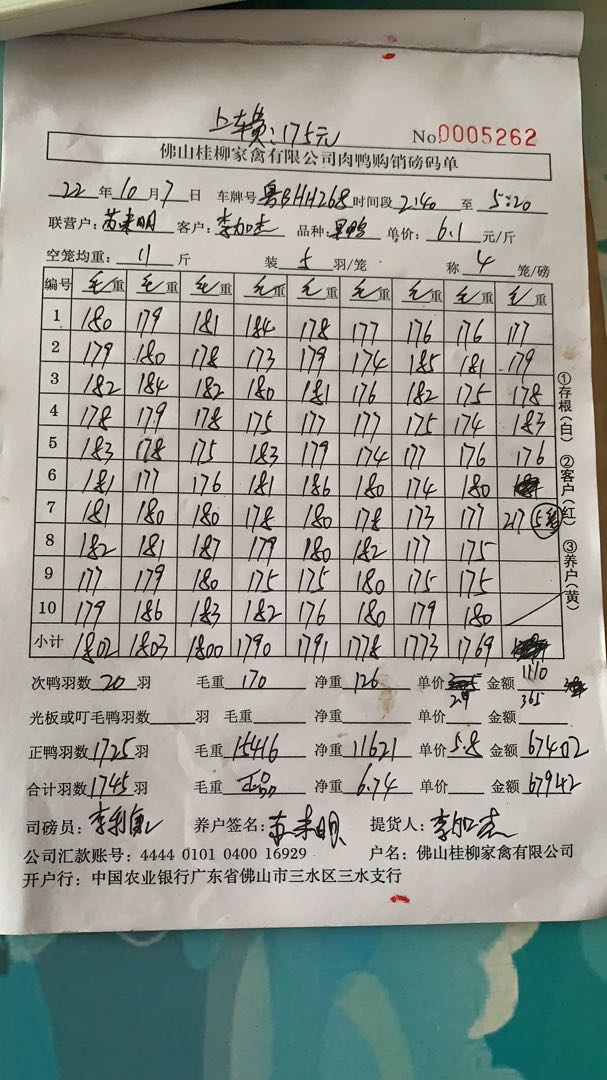 上车费：175元
No.0005262
佛山桂柳家禽有限公司肉鸭购销磅码单
22年10月7日 车牌号粤BHH268 时间段2:40至5:20
联营户：苏来明 客户：李加杰 品种： 单价：6.1元/斤
空笼均重：11斤 装5羽/笼 称4笼/磅
编号 毛重 毛重 毛重 毛重 毛重 毛重 毛重 毛重 毛重
1 180 179 181 184 178 177 176 176 177
2 179 180 178 173 179 174 185 181 179
3 182 184 182 180 181 176 182 175 178
4 178 179 178 175 177 177 175 174 183
5 183 178 175 183 179 174 177 176 176
6 181 177 176 181 186 180 174 180
7 181 180 180 178 180 178 173 177 217 5笼
8 182 181 187 179 180 182 177 175
9 177 179 180 175 175 180 175 175
10 179 186 183 182 176 180 179 180
小计 1802 1803 1800 1790 1791 1778 1773 1769 1110
①存根（白） ②客户（红） ③养户（黄）
次鸭羽数20羽 毛重170 净重126 单价2.9 金额365
光板或叮毛鸭羽数 羽 毛重 净重 单价 金额
正鸭羽数1725羽 毛重15416 净重11621 单价5.8 金额67402
合计羽数1745羽 毛重正品 净重6.74 单价 金额67942
司磅员： 养户签名：苏来明 提货人：李加杰
公司汇款账号：4444 0101 0400 16929 户名：佛山桂柳家禽有限公司
开户行：中国农业银行广东省佛山市三水区三水支行